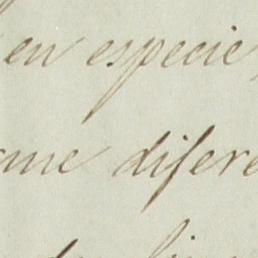 en especie
me difere